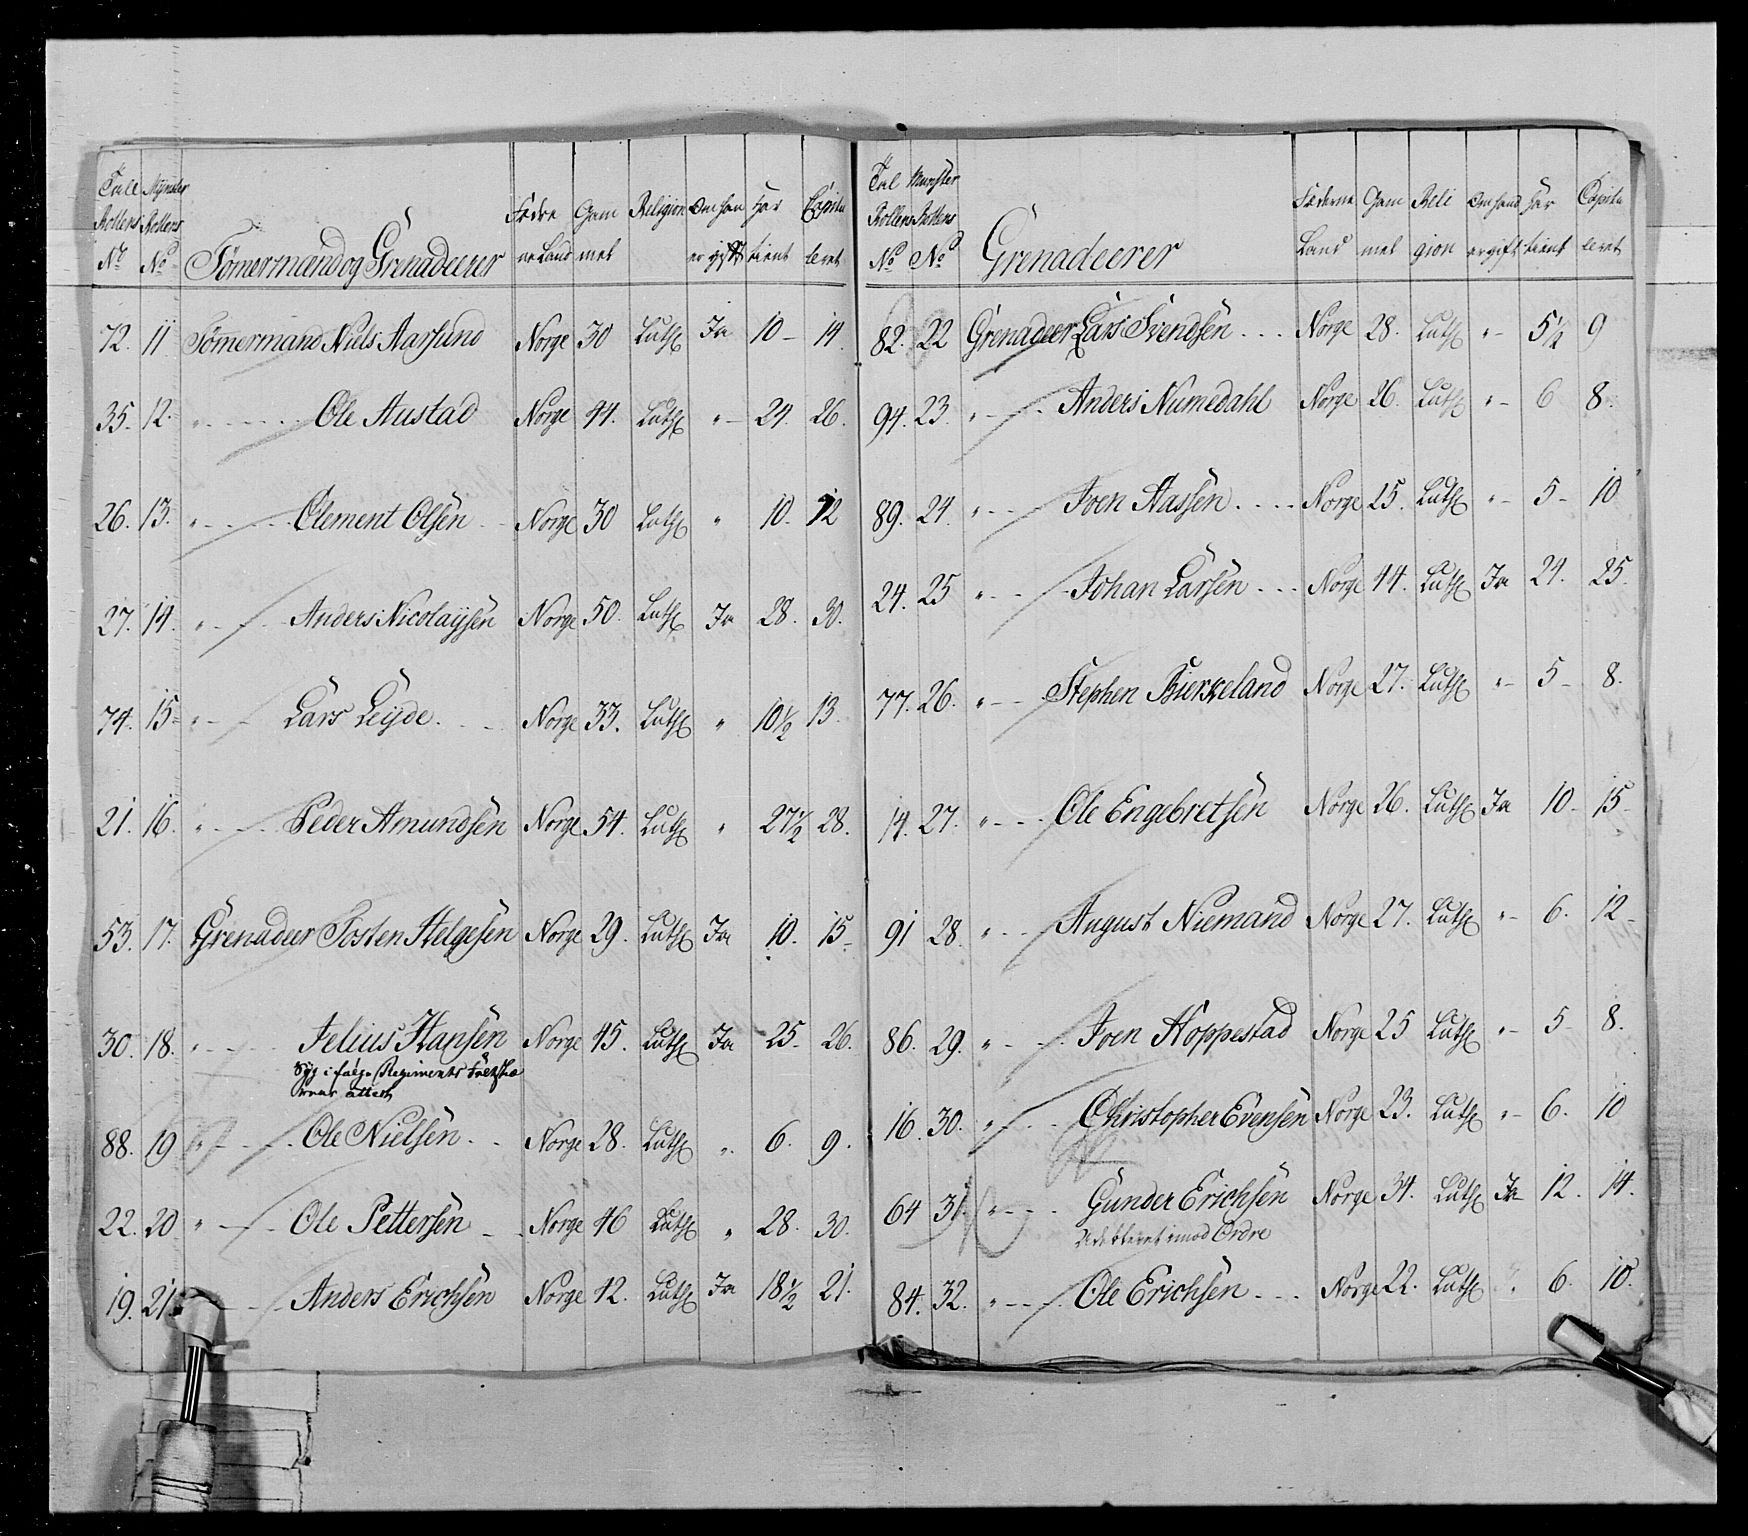 Tall Rollens No | Mynster Rollens No | Tømermænd og Grenadeerer | Fædrene Land | Gammel | Religion | Om han er gift | Har tient | Capituleret
72. 11 Tømermand Niels Aarsund Norge 30 Luthr Ja 10 - 14.
35. 12. " - - - - Ole Austad Norge 44. Luthr " - 24. 26.
26. 13. " - - - - Clement Olsen - - Norge 30 Luthr " 10. 12
27. 14. " - - - Anders Nicolaysen Norge 50. Luthr Ja 28. 30.
74. 15 " - - Lars Leyde. - - Norge 33. Luthr " 10½ 13.
21. 16. " - - - Peder Amundsen Norge 54. Luthr " 27½ 28.
53. 17. Grenadeer Tosten Helgesen Norge 29. Luthr Ja 10. 15 -
30. 18. " - - - Jelius Hansen Norge 45. Luthr Ja 25 - 26.
Syg i følge Regiments attest
88. 19 " - - - Ole Nielsen - - Norge 28. Luthr " 6. 9.
22. 20 " - - - Ole Pettersen - - Norge 46 Luthr " 28. 30.
19. 21 - - - Anders Erichsen Norge 42. Luthr Ja 18½ 21.
Tal Rollens No | Munster Rollens No | Grenadeerer | Fæderne Land | Gammel | Religion | Om hand er gift | Har tient | Capituleret
82. 22 Grenadeer Lars Svendsen - - - Norge 28. Luthr " - 5½ 9
94. 23. " - - - Anders Numedahl Norge 26. Luthr " - 6 8.
89. 24. " - - - Joen Aassen - - - - Norge 25. Luthr " - 5 - 10
24. 25 " - - - Johan Larsen - - - Norge 44. Luthr Ja 24. 25.
77. 26. " - - - Stephen Bierkeland Norge 27. Luthr " - 5 - 8.
14. 27. " - - - Ole Engebretsen Norge 26. Luthr Ja 10 - 15 -
91 28. " - - - August Niemand Norge 27. Luthr " - 6. 12 -
86. 29. " - - - Joen Hoppestad Norge 25 Luthr " - 5 - 8.
16. 30. " - - - Christopher Evensen Norge 23. Luthr " - 6. 10
64 31 " - - - Gunder Erichsen Norge 34. Luthr Ja 12. 14.
imod Ordre
84. 32. " - - - Ole Erichsen - - - Norge 22. Luthr 6. 10.